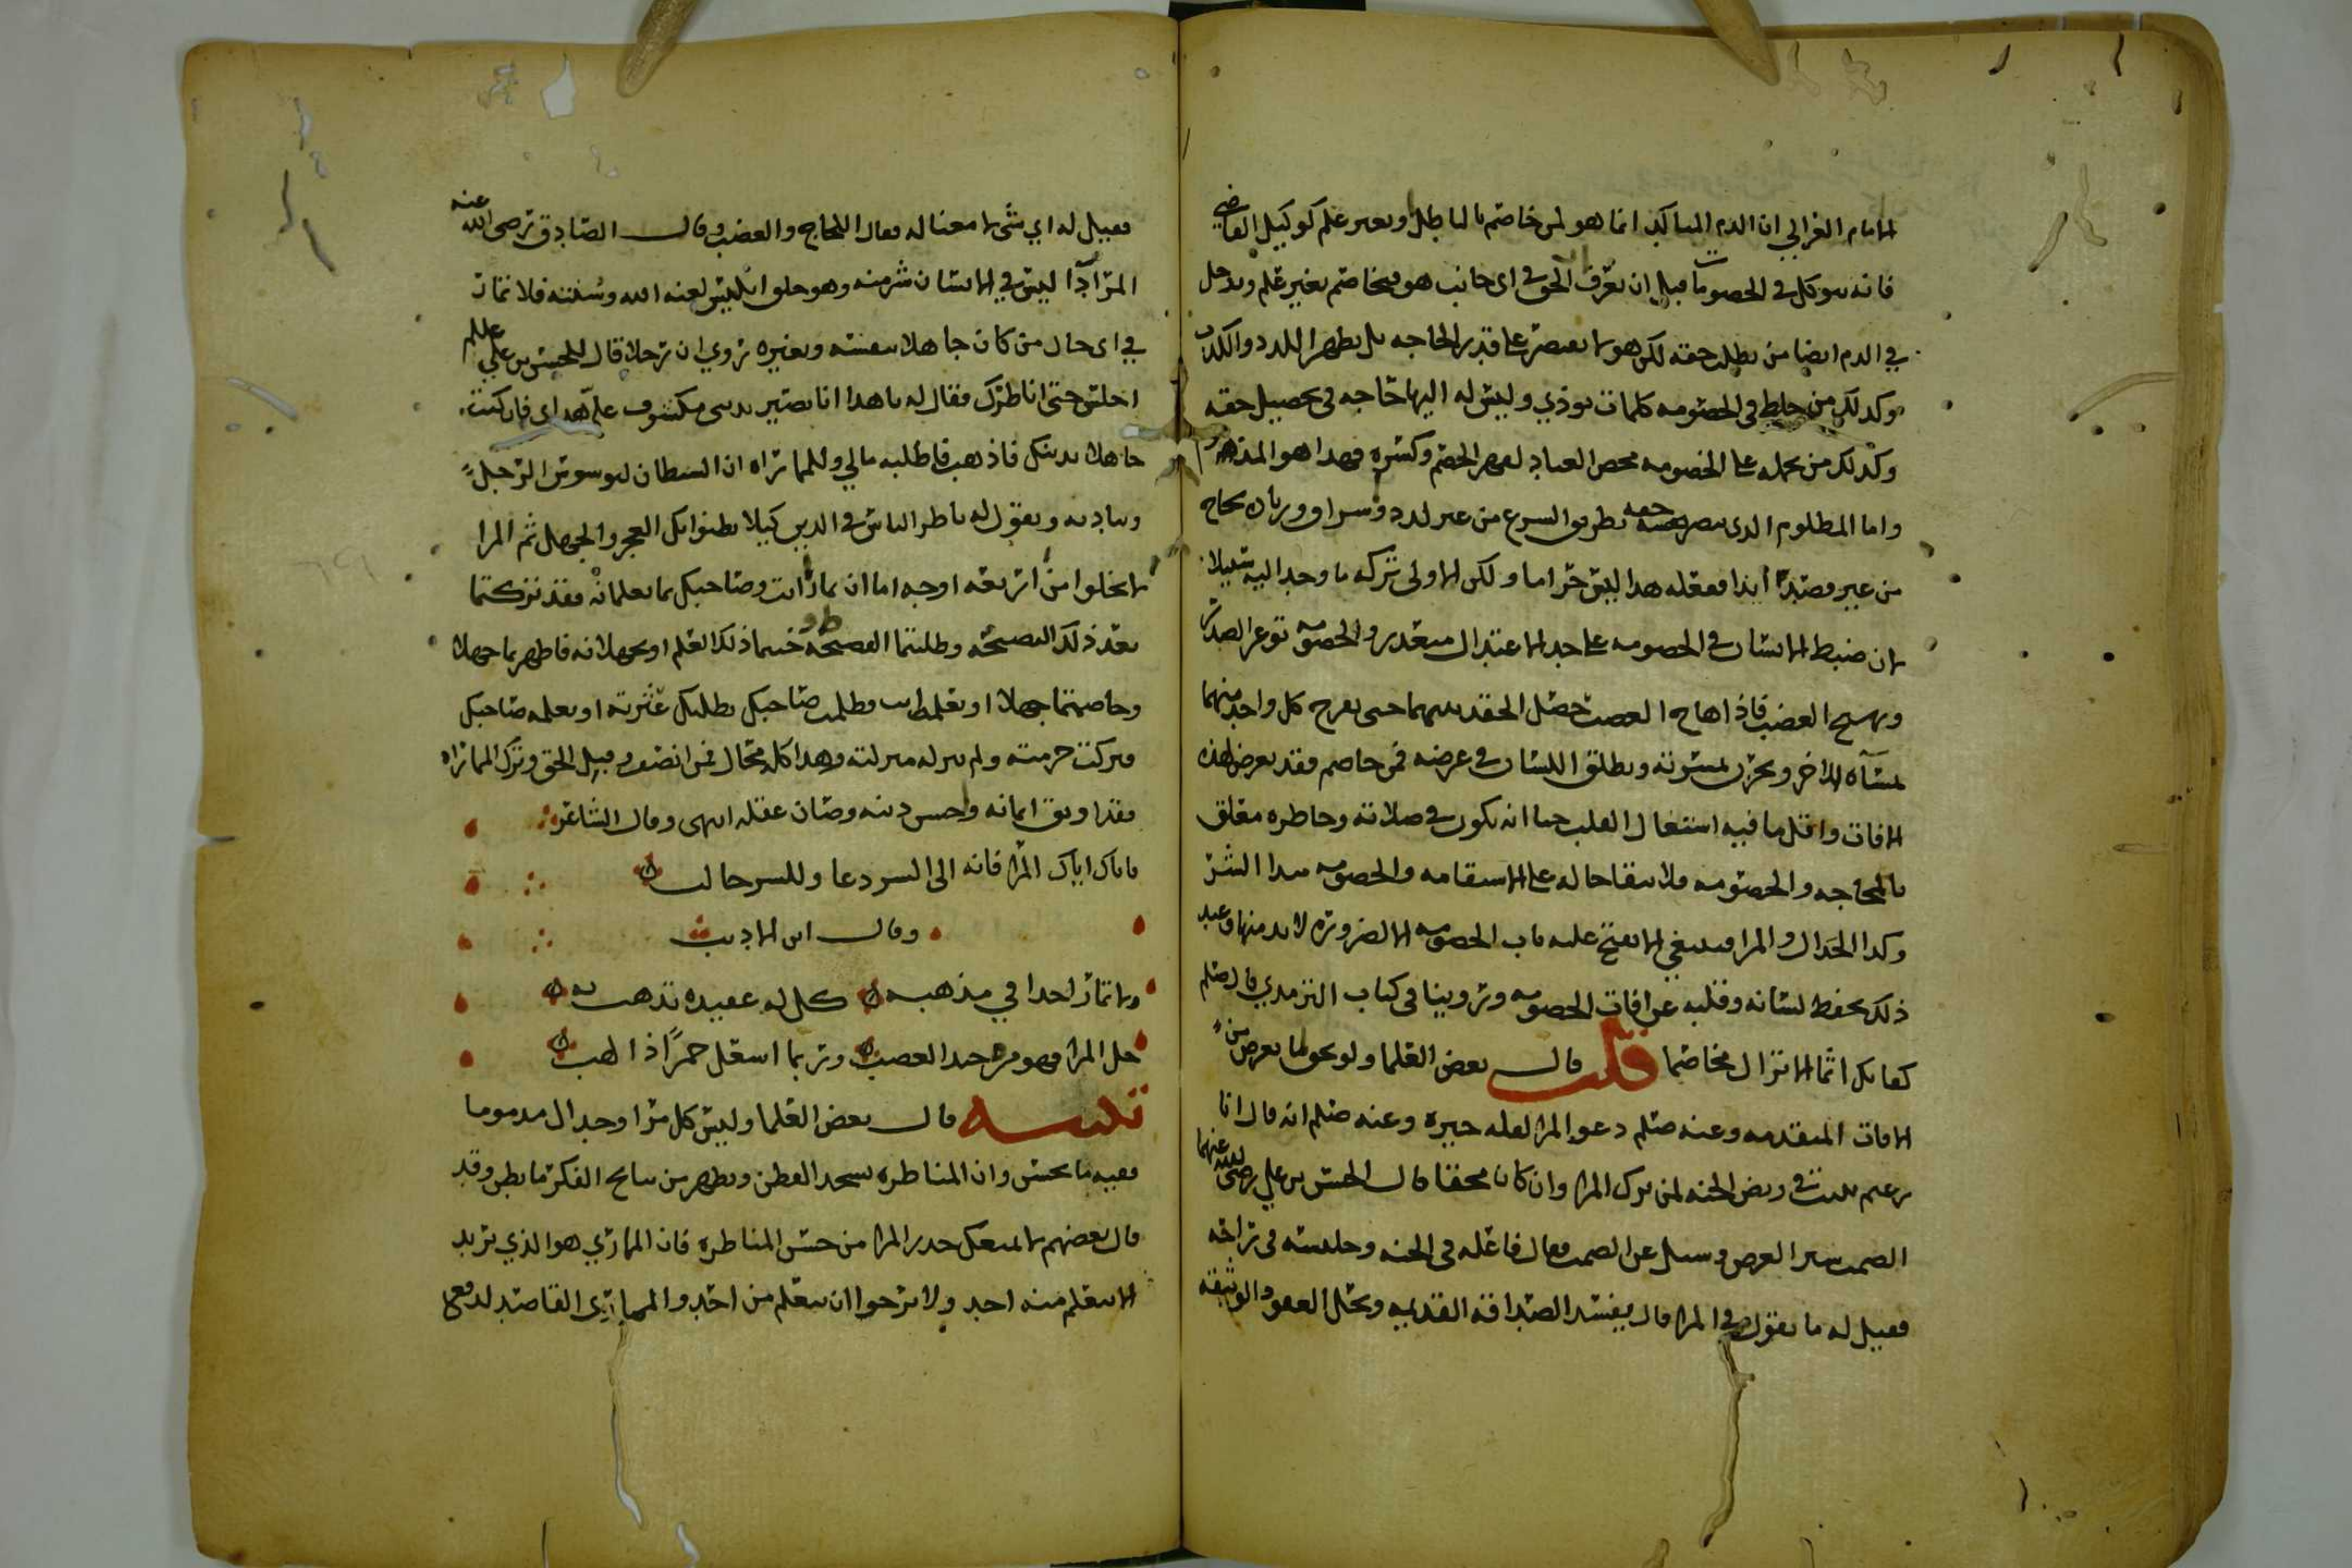 الامام الغزالي ان الذم المتاكد انما هو لمن خاصم بالباطل وبغير علم كوكيل القاضي
فانه يتوكل في الخصومات قبل ان يعرف الحق في اي جانب هو فيخاصم بغير علم ويدخل
في الذم ايضا من يطلب حقه لكن هو لا يقتصر على قدر الحاجه بل يظهر اللدد والكذب
وكذلك من خلط في الخصومه كلمات توذي وليس له اليها حاجه في تحصيل حقه
وكذلك من يحمله على الخصومه محض العناد لقهر الخصم وكسره فهذا هو المذموم
واما المظلوم الذي ينصر حجته بطريق الشرع من غير لدد واسراف وزيادة لجاج
من غير قصد ايذا ففعله هذا ليس حراما ولكن الاولى تركه ما وجد اليه سبيلا
لان ضبط اللسان في الخصومه على حد الاعتدال متعذر والخصومه توغر الصدر
وتهيج الغضب فاذا هاج الغضب حصل الحقد بينهما حتى يفرح كل واحد منهما
بمسآة الاخر ويحزن لمسرته ويطلق اللسان في عرضه فمن خاصم فقد تعرض لهذه
الافات واقل ما فيه اشتغال القلب حتى انه يكون في صلاته وخاطره معلق
بالمحاجه والخصومه فلا يبقا حاله على الاستقامه والخصومه مبدا الشر
وكذا الجدال والمرا فينبغي الا يفتح عليه باب الخصومه الا لضروره لا بد منها وعند
ذلك يحفظ لسانه وقلبه عن افات الخصومه وروينا في كتاب الترمذي قال صلم
كفا بك اثما الا تزال مخاصما قلت قال بعض العلما
الافات المتقدمه وعنه صلم دعوا المرا لقله خيره وعنه صلم انه قال انا
زعيم ببيت في ربض الجنه لمن ترك المرا وان كان محقا قال الحسن بن علي رضي الله عنهما
الصمت ستر العرض وسيل عن الصمت فقال فاعله في الجنه وجليسه في راحه
فقيل له ما تقول في المرا قال يفسد الصداقه القديمه ويحل العقود الوثيقه
فقيل له اي شي لا معنا له فقال اللجاج والغضب وقال الصادق رضي الله عنه
المرا دآ ليس في الانسان شر منه وهو خلق ابليس لعنه الله وسنته فلا تمار
في اي حال من كان جاهلا بنفسه وبغيره روي ان رجلا قال للحسين بن علي علم
اجلس حتى اناظرك فقال له يا هذا انا بصير بديني مكشوف علي هداي فان كنت
جاهلا بدينك فاذهب فاطلبه مالي وللمماراه ان الشيطان ليوسوس الرجل
ويناديه ويقول له ناظر الناس في الدين كيلا يظنوا بك العجز والجهل ثم المرا
لا يخلوا من اربعه اوجه اما ان تمار انت وصاحبك بما تعلمانه فقد تركتما
بعد ذلك النصيحه وطلبتما الفضيحه وضيعتما ذلك العلم او تجهلانه فاظهرتما جهلا
وخاصمتما جهلا او تعلمه انت فظلمت صاحبك بطلبك عثرته او يعلمه صاحبك
فتركت حرمته ولم تنزله منزلته وهذا كله محال فمن انصف وقبل الحق وترك المماراه
فقد اوثق ايمانه واحسن دينه وصان عقله انتهى وقال الشاعر
فاياك اياك المرا فانه الى الشر دعا وللشر جالب
وقال ابن الاديب
ولا تمار احدا في مذهبه كل له عقيده تذهب به
خل المرا فهو مزحد الغضب وربما اشعل جمرا ذا لهب
تنبيه قال بعض العلما وليس كل مرا وجدال مذموما
ففيه ما يحسن وان المناظره تشحذ الفطن وتظهر من نتايج الفكر ما بطن وقد
قال بعضهم لا يمنعك حذر المرا من حسن المناظره فان المماري هو الذي يريد
الا يتعلم منه احد ولا يرجوا ان يتعلم من احد والمماري القاصد لدفع